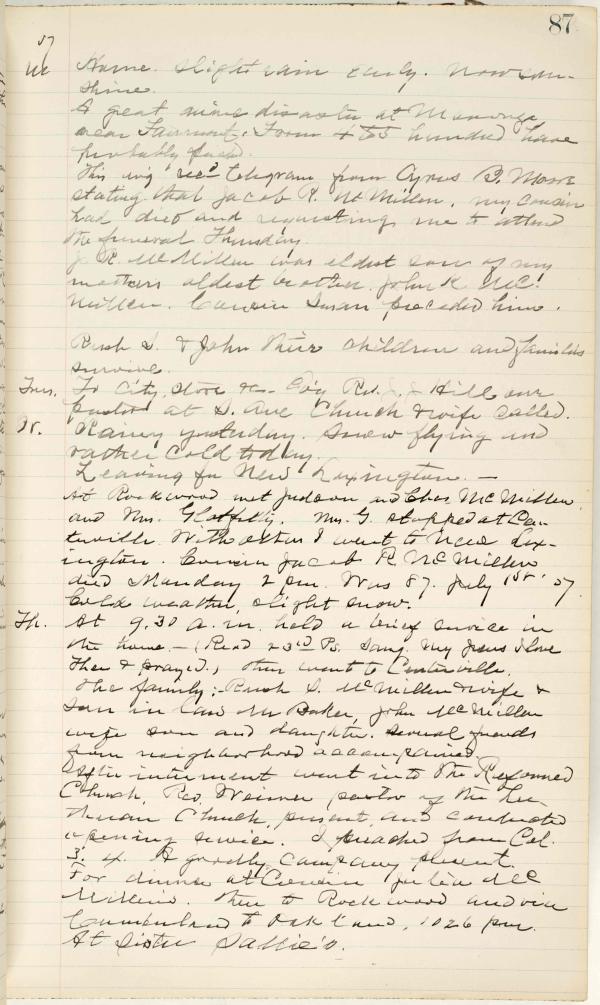 87
57
Home. Slight rain early. Now sun-
shine.
A great mine disaster at Monongo
near Fairmont. From 4 to 5 hundred have
probably
This mg rec'd telegram from Cyrus B. Moore
stating that Jacob R. McMillen, my cousin
had died and requesting me to attend
the funeral Thursday.
J. R. McMillen was eldest son of my
mothers oldest brother. John K Mc.
Millen. Cousin Susan preceded him.
Rush S. & John their children and families
survive.
Tues. To City, store &c. Eve'g Rev. J. J. Hill our
pastor at S. Ave Church & wife called.
W. Rainy yesterday. Snow flying and
rather cold today.
Leaving for New Lexington. —
At Rockwood met Judson and Chas McMillen
and Mrs. Glotfelty. Mrs. G. stopped at Cen-
terville. With others I went to New Lex-
ington. Cousin Jacob R. McMillen
died Monday 2 pm. Was 87. July 1st '57.
Cold weather, slight snow.
Th. At 9,30 a.m. held a brief service in
the home. — (Read 23rd Ps. Sang. My Jesus I love
Thee & prayed.) then went to Centerville.
The family: Rush S. McMillen & wife &
son in law Mr Baker, John McMillen
wife son and daughter. Several friends
from neighborhood accompanied
After interment went into the Reformed
Church. Rev. Weimer pastor of the Lu-
theran Church, present, and conducted
opening service. I preached from Col.
3: A goodly company present.
For dinner at Cousin Mc
Millens. Then to Rockwood and via
Cumberland to Oakland, 10 26 pm.
At Sister Sallie's.